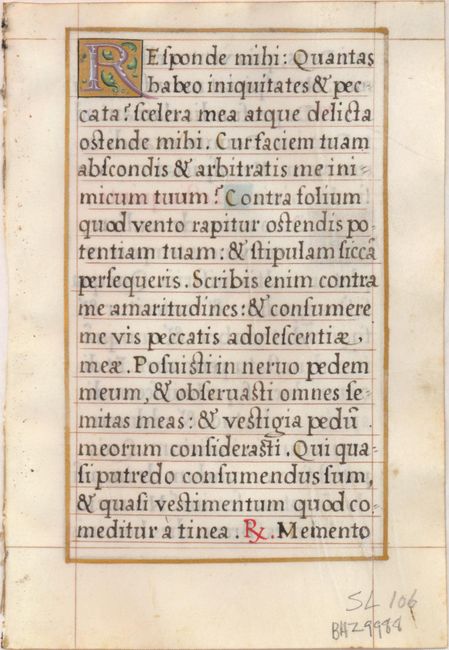 REsponde mihi: Quantas
habeo iniquitates & pec=
cata? scelera mea atque delicta
ostende mihi. Cur faciem tuam
abscondis & arbitratis me ini=
micum tuum? Contra folium
quod vento rapitur ostendis po=
tentiam tuam: & stipulam siccã
persequeris. Scribis enim contra
me amaritudines: & consumere
me vis peccatis adolescentiæ,
meæ. Posuisti in neruo pedem
meum, & obseruasti omnes se=
mitas meas: & vestigia pedũ
meorum considerasti. Qui qua=
si putredo consumendus sum,
& quasi vestimentum quod co=
meditur à tinea. ℞. Memento
SL 106
BHZ9988